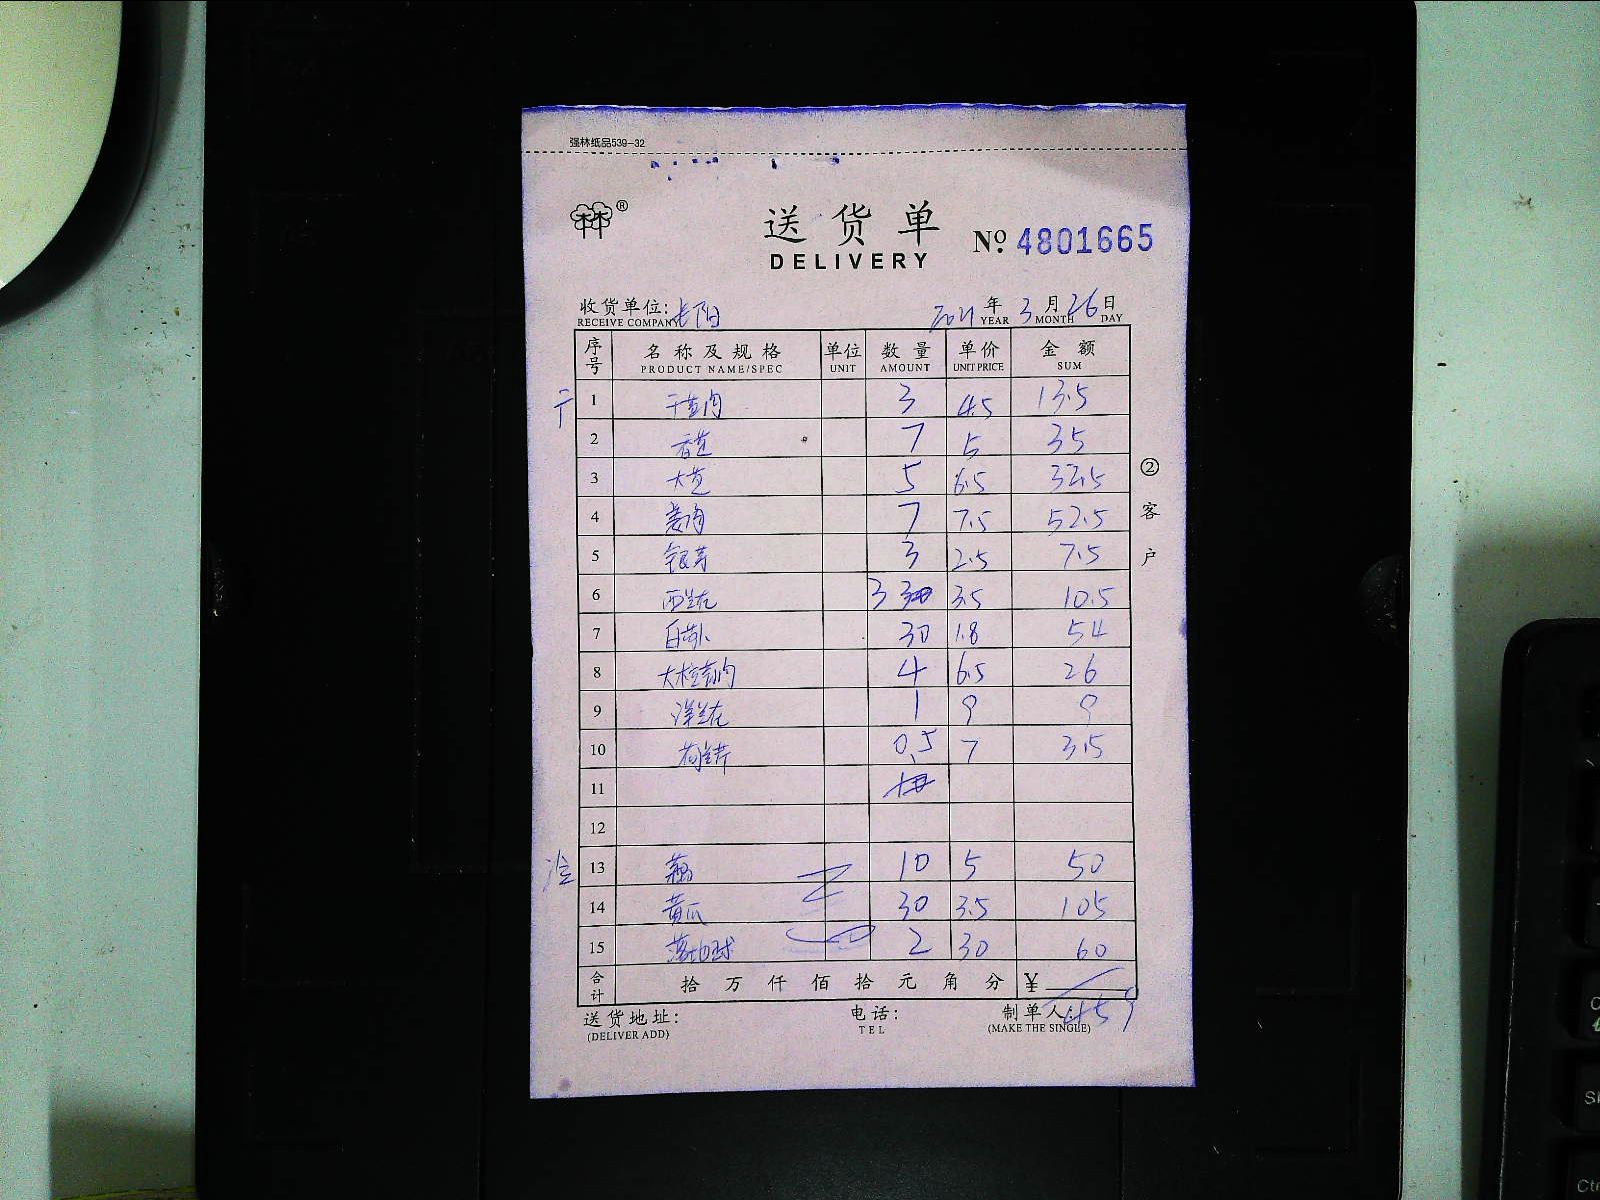 强林纸品539-32
®
送货单
DELIVERY
No. 4801665
收货单位: 长阳 2021年 3月 26日
RECEIVE COMPANY YEAR MONTH DAY
序号 名称及规格 单位 数量 单价 金额
PRODUCT NAME/SPEC UNIT AMOUNT UNIT PRICE SUM
1 3 4.5 13.5
2 香芝 7 5 35
3 大芝 5 6.5 32.5
4 姜肉 7 7.5 52.5
5 银芽 3 2.5 7.5
6 西兰花 3 3.5 10.5
7 白萝卜 30 1.8 54
8 4 6.5 26
9 洋兰花 1 9 9
10 0.5 7 3.5
11
12
13 藕 10 5 50
14 黄瓜 30 3.5 105
15 2 30 60
合计 拾 万 仟 佰 拾 元 角 分 ¥ 459
送货地址: 电话: 制单人:
(DELIVER ADD) TEL (MAKE THE SINGLE)
② 客户